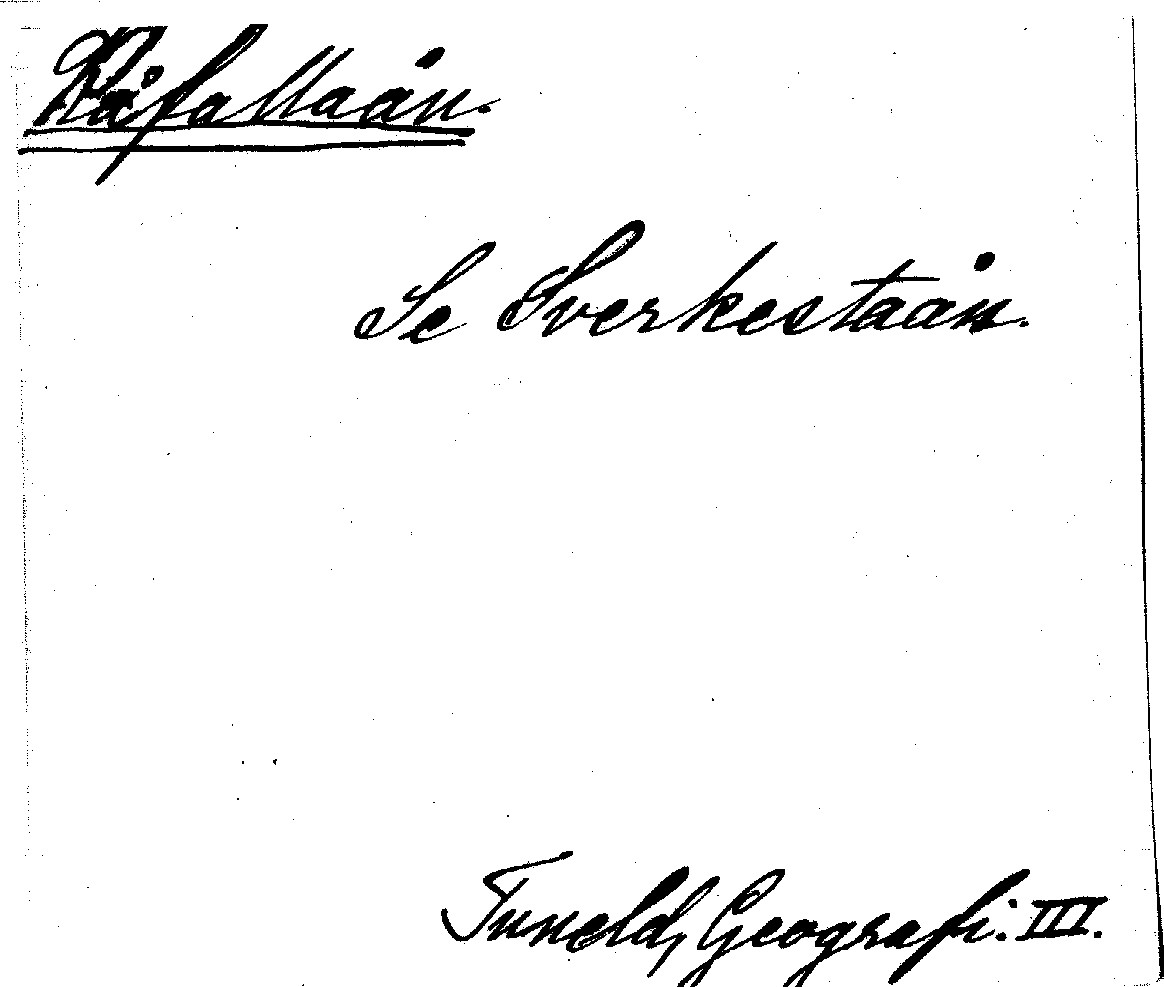 Råfallaån.
Se Sverkestaån.
Tuneld, Geografi. III.